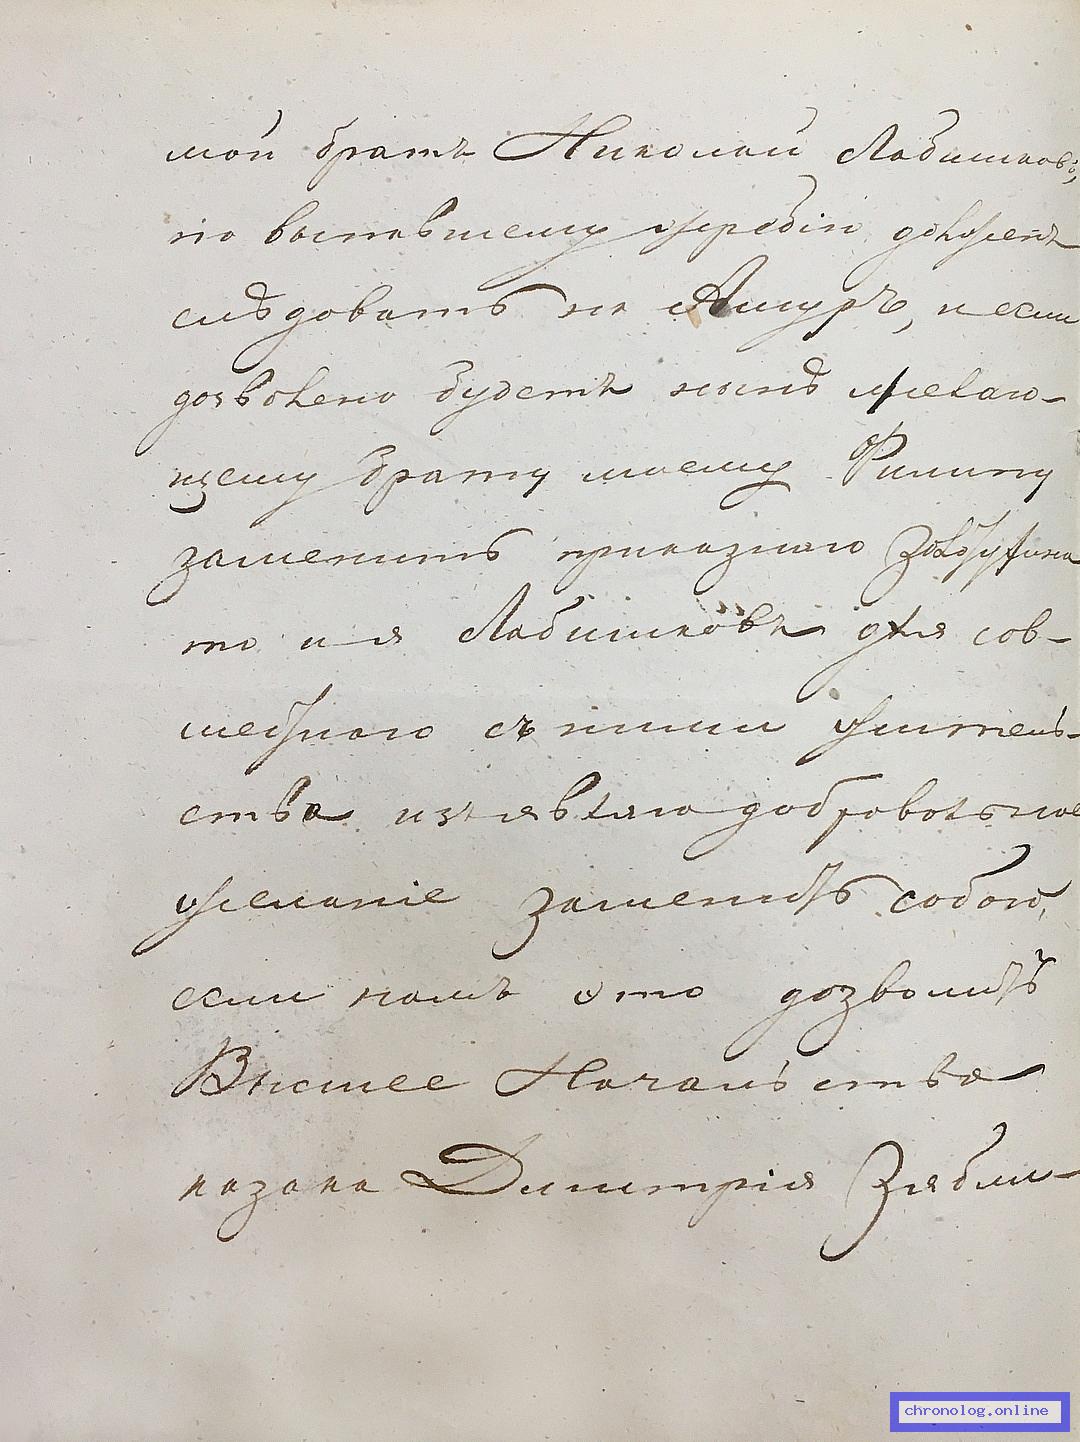 мой братъ Николай Лабышковъ,
по выпавшему жребiю долженъ
слѣдовать на Амуръ, и если
дозволено будетъ нынѣ желаю-
щему брату моему Филипу
заменить приказнаго
то и я Лабышковъ для сов-
местнаго съ ними житель-
ства изъявляю добровольное
желанiе заменить собою,
если намъ это дозволитъ
Высшее Начальство
казака Дмитрiя Зябли-
chronolog.online